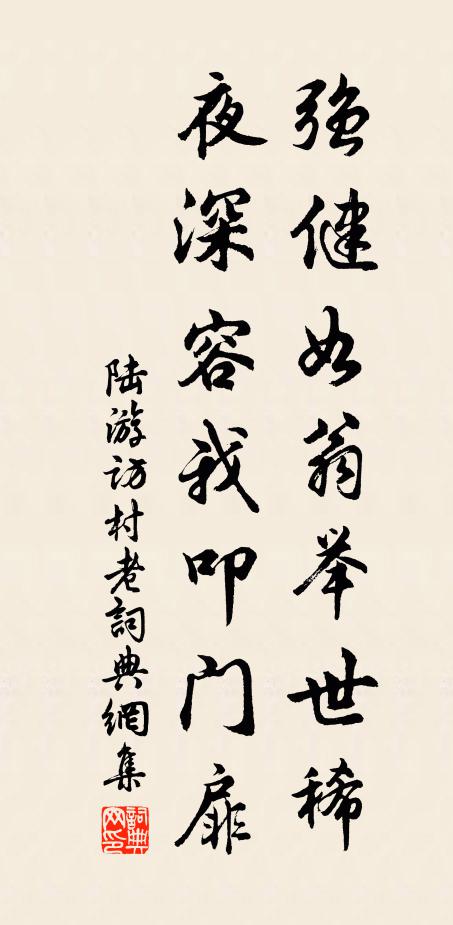 强健如翁举世稀
夜深容我叩门扉
陆游访村老詞典網集
詞典
网印